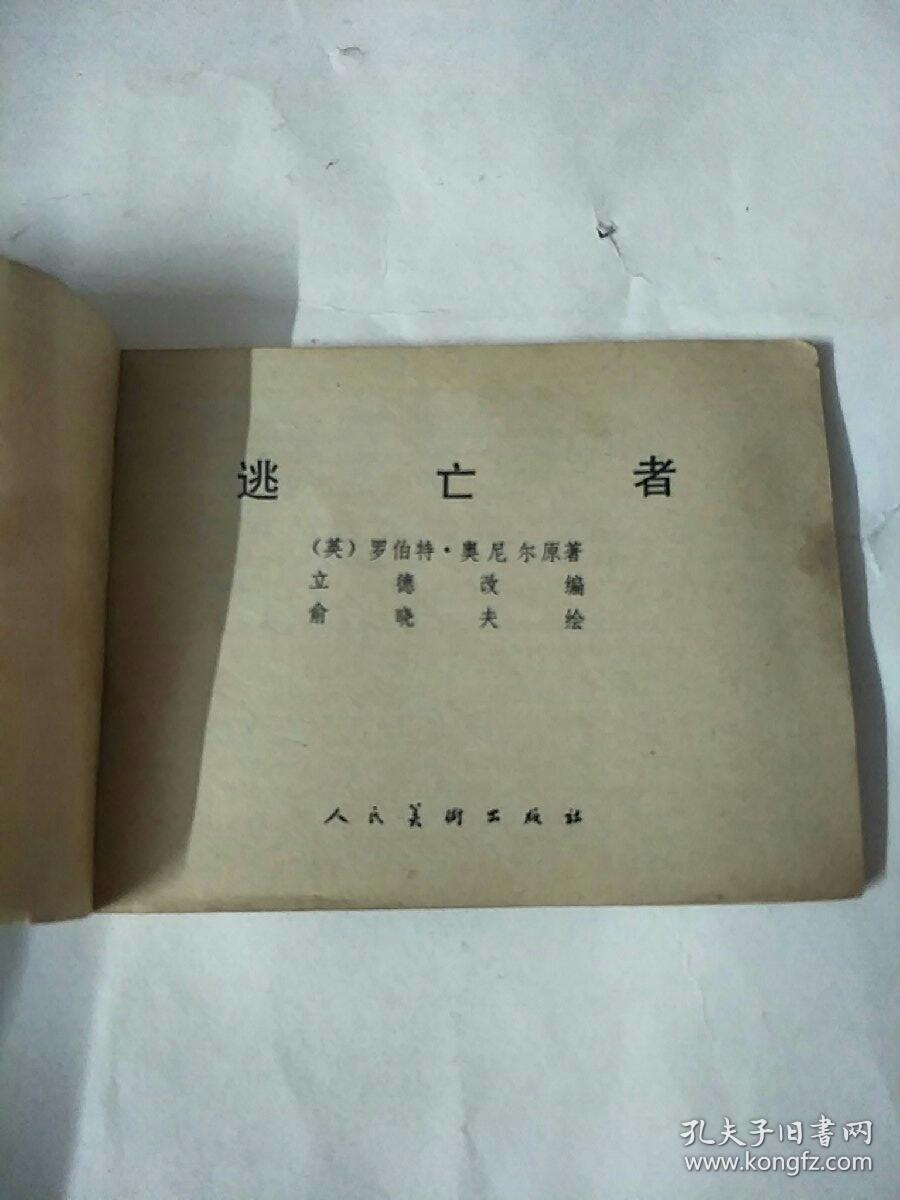 逃亡者
（英）罗伯特·奥尼尔原著
立德改编
俞晓夫绘
人民美術出版社
孔夫子旧書网
www.kongfz.com